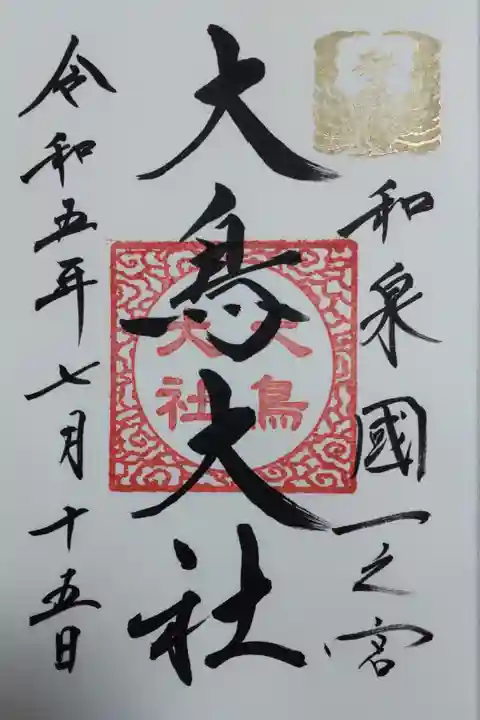 和泉國一之宮
大鳥大社
大鳥
大社
令和五年七月十五日